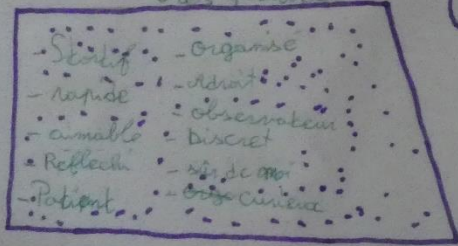 - Sportif
- rapide
- aimable
- Réflechi
- Patient
- organisé
- Adroit
- observateur
- Discret
- sûr de moi
- curieux